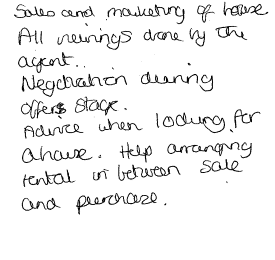 Sales and marketing of house
All viewings done by the
agent..
Negotiation during
offers stage.
Advice when looking for
a house. Help arranging
rental in between sale
and purchase.